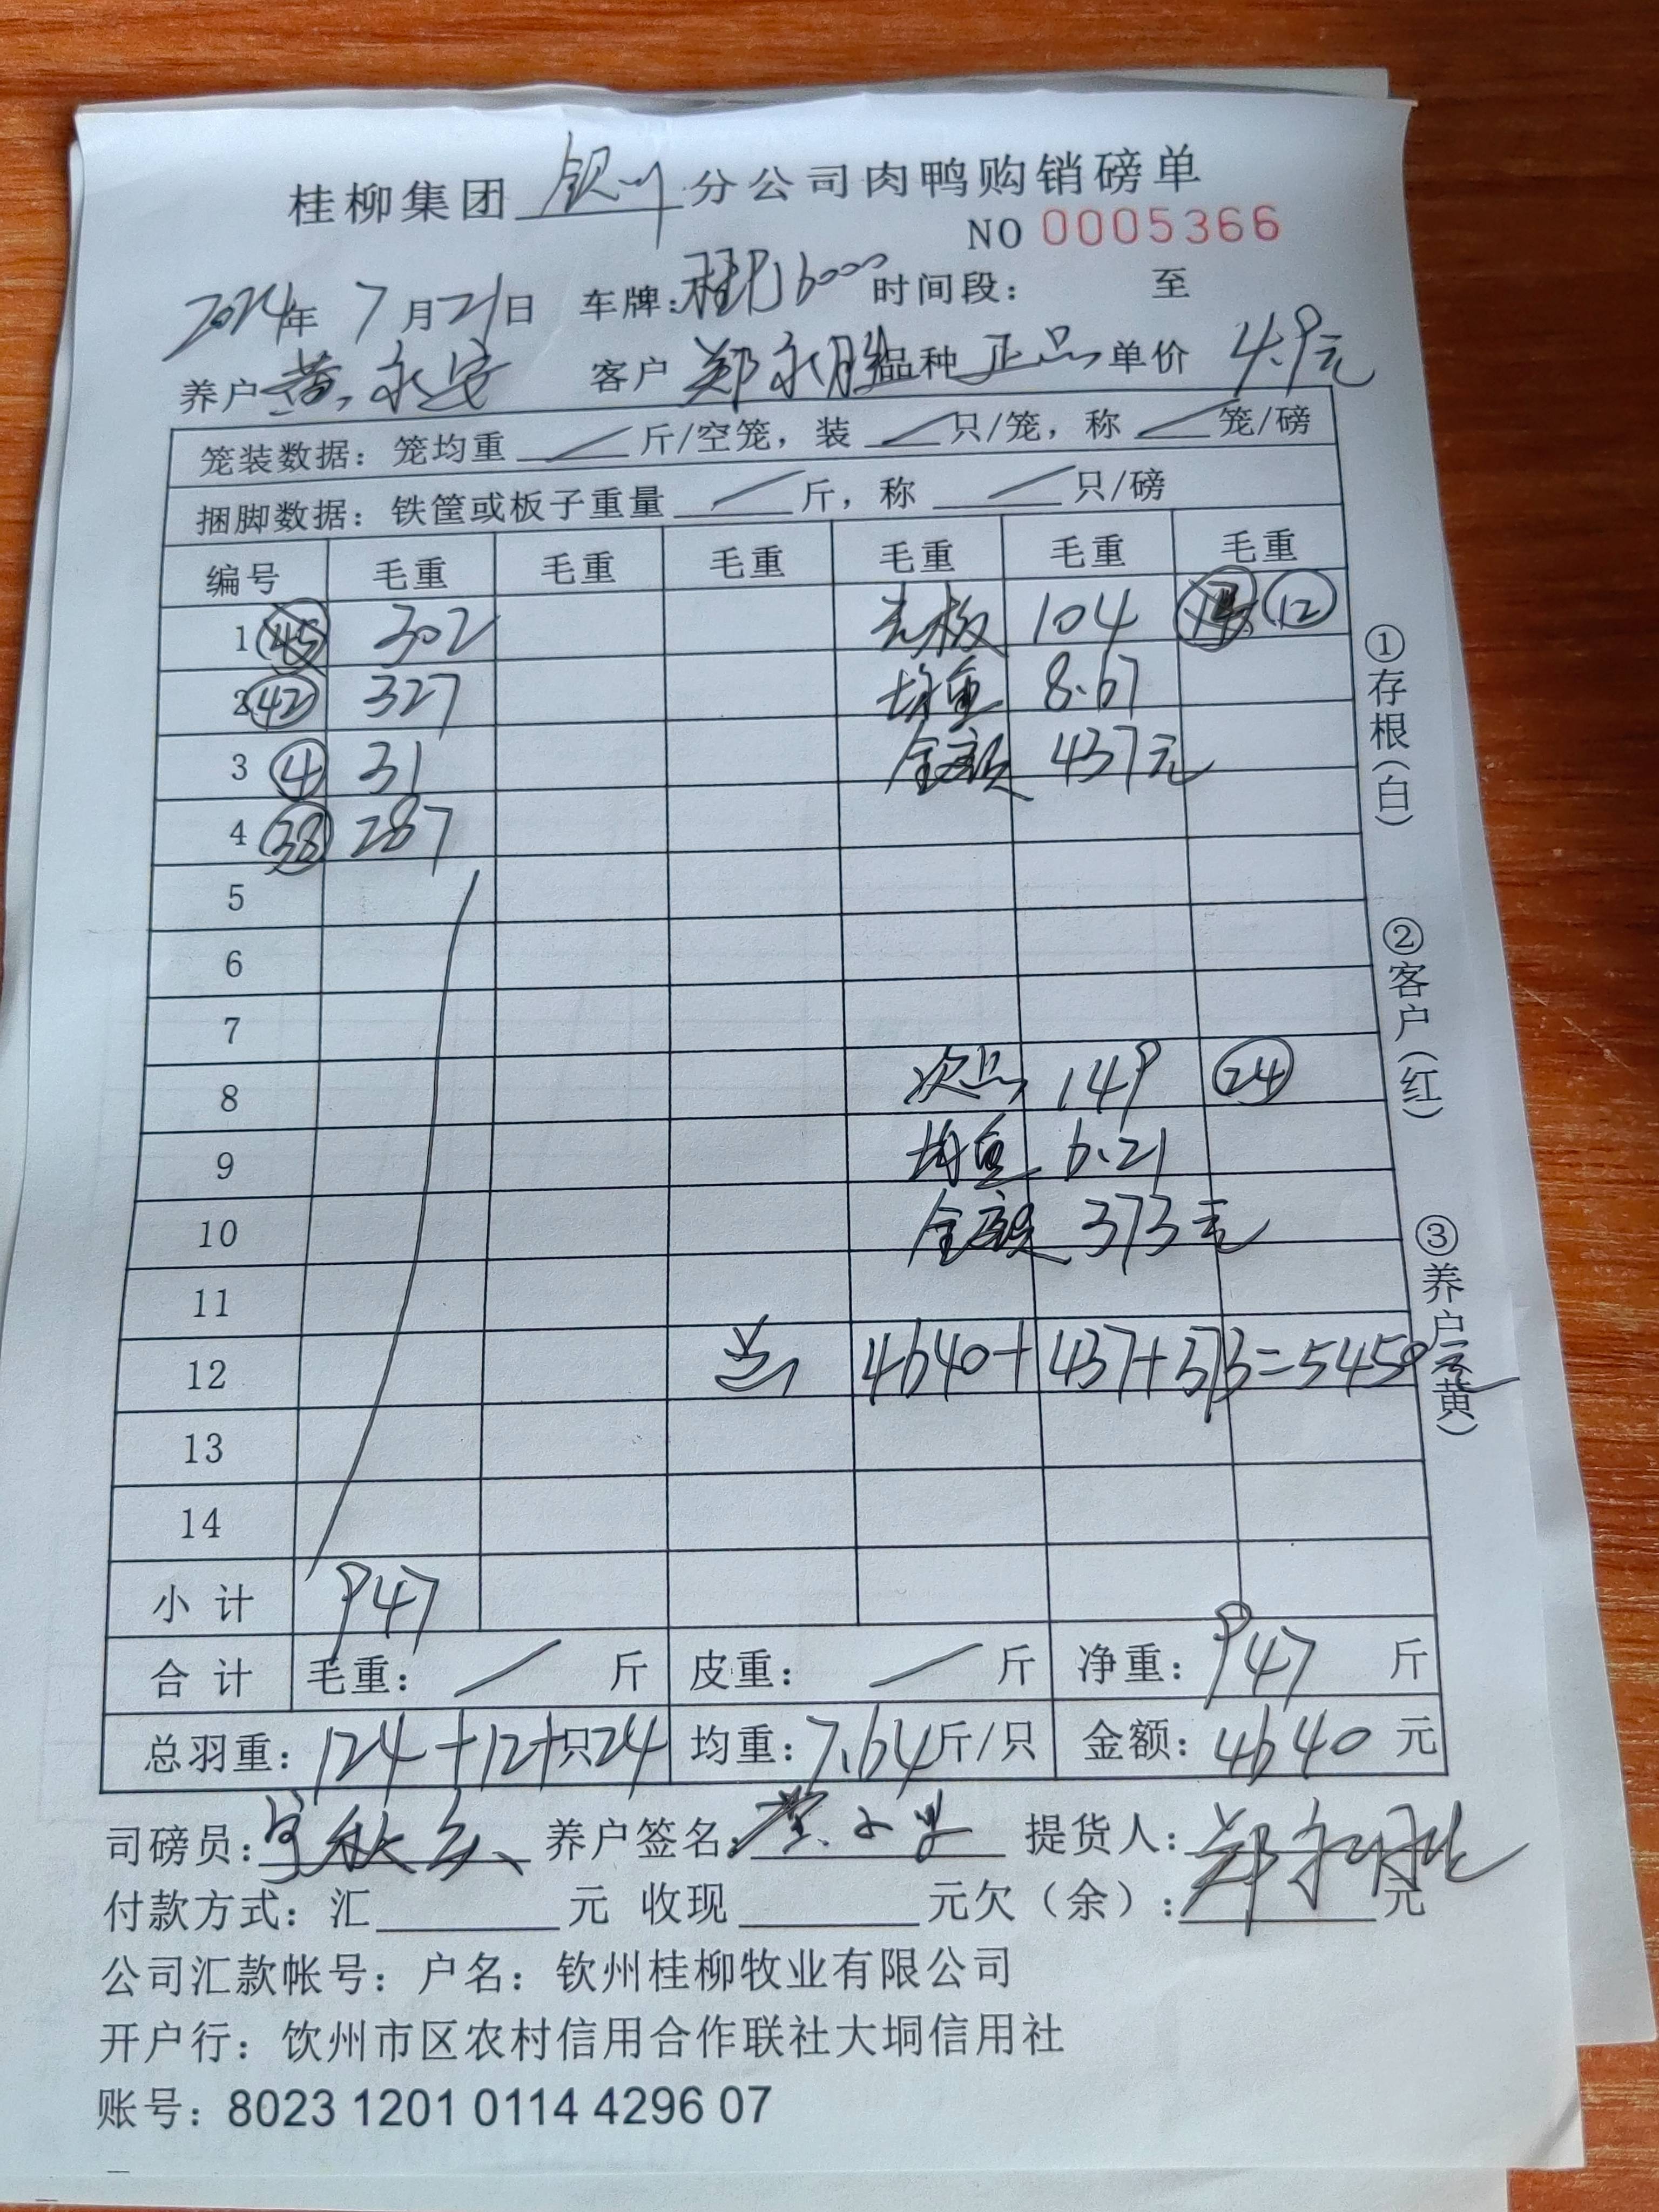 桂柳集团 钦州 分公司肉鸭购销磅单
NO 0005366
2024年 7月21日 车牌: 时间段: 至
养户 黄永安 客户 郑永胜 品种 正品 单价 4.9元
笼装数据: 笼均重 / 斤/空笼, 装 / 只/笼, 称 / 笼/磅
捆脚数据: 铁筐或板子重量 / 斤, 称 / 只/磅
编号 毛重 毛重 毛重 毛重 毛重 毛重
1 302 104 12
2 42 327 均重 8.67
3 4 31 金额 437元
4 38 287
5
6
7
8 次品 149 24
9 均重 6.21
10 金额 373元
11
12 4640+437+373=5450元
13
14
小计 947
合计 毛重: / 斤 皮重: / 斤 净重: 947 斤
总羽重: 124+12+24 只 均重: 7.64斤/只 金额: 4640 元
司磅员: 养户签名: 提货人: 郑永胜
付款方式: 汇 元 收现 元欠（余）: 元
公司汇款帐号: 户名: 钦州桂柳牧业有限公司
开户行: 钦州市区农村信用合作联社大垌信用社
账号: 8023 1201 0114 4296 07
①存根（白）
②客户（红）
③养户（黄）